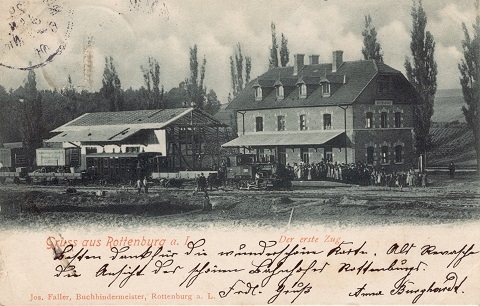 Gruss aus Rottenburg a. L.
Der erste Zug.
Besten Dank für die wunderschöne Karte. Als Revanche
die Ansicht des schönen Bahnhofes Rottenburgs.
Frdl. Gruß Anna Burghardt
Jos. Faller, Buchbindermeister, Rottenburg a. L.